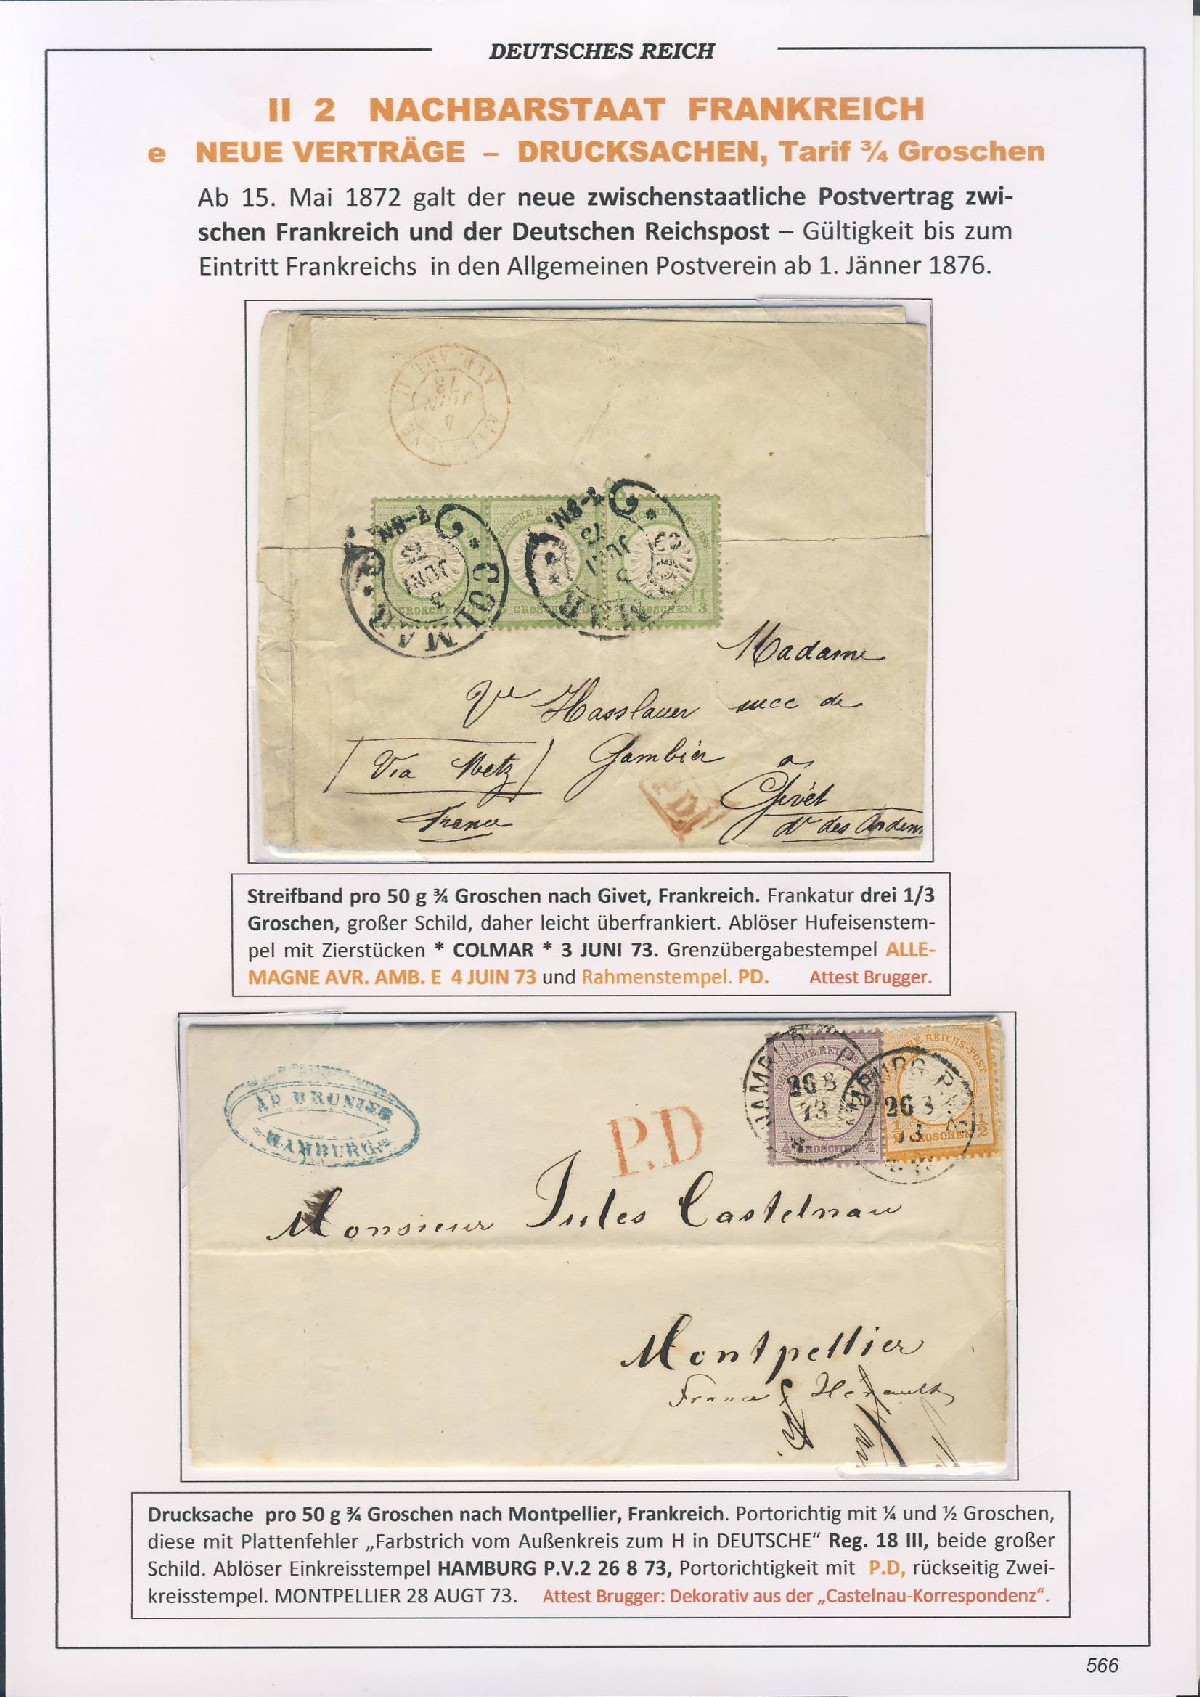 DEUTSCHES REICH
II 2 NACHBARSTAAT FRANKREICH
e NEUE VERTRÄGE – DRUCKSACHEN, Tarif ¾ Groschen
Ab 15. Mai 1872 galt der neue zwischenstaatliche Postvertrag zwi-
schen Frankreich und der Deutschen Reichspost – Gültigkeit bis zum
Eintritt Frankreichs in den Allgemeinen Postverein ab 1. Jänner 1876.
7-8N.
3
JUNI
73
* COLMAR *
7-8N.
3
JUNI
73
GROSCHEN
GROSCHEN
GROSCHEN 1/3
Madame
Vve Hasslauer succ de
Gambier
Via Metz
France
PD
Givet
dt des Ardenn
Streifband pro 50 g ¾ Groschen nach Givet, Frankreich. Frankatur drei 1/3
Groschen, großer Schild, daher leicht überfrankiert. Ablöser Hufeisenstem-
pel mit Zierstücken * COLMAR * 3 JUNI 73. Grenzübergabestempel ALLE-
MAGNE AVR. AMB. E 4 JUIN 73 und Rahmenstempel. PD. Attest Brugger.
HAMBURG P.
26 8
73
HAMBURG P.V.2
26 8
73
¼ GROSCHEN ¼
½ GROSCHEN ½
HAMBURG
P.D
Monsieur Jules Castelnau
Montpellier
France Hérault
Drucksache pro 50 g ¾ Groschen nach Montpellier, Frankreich. Portorichtig mit ¼ und ½ Groschen,
diese mit Plattenfehler „Farbstrich vom Außenkreis zum H in DEUTSCHE“ Reg. 18 III, beide großer
Schild. Ablöser Einkreisstempel HAMBURG P.V.2 26 8 73, Portorichtigkeit mit P.D, rückseitig Zwei-
kreisstempel. MONTPELLIER 28 AUGT 73. Attest Brugger: Dekorativ aus der „Castelnau-Korrespondenz“.
566